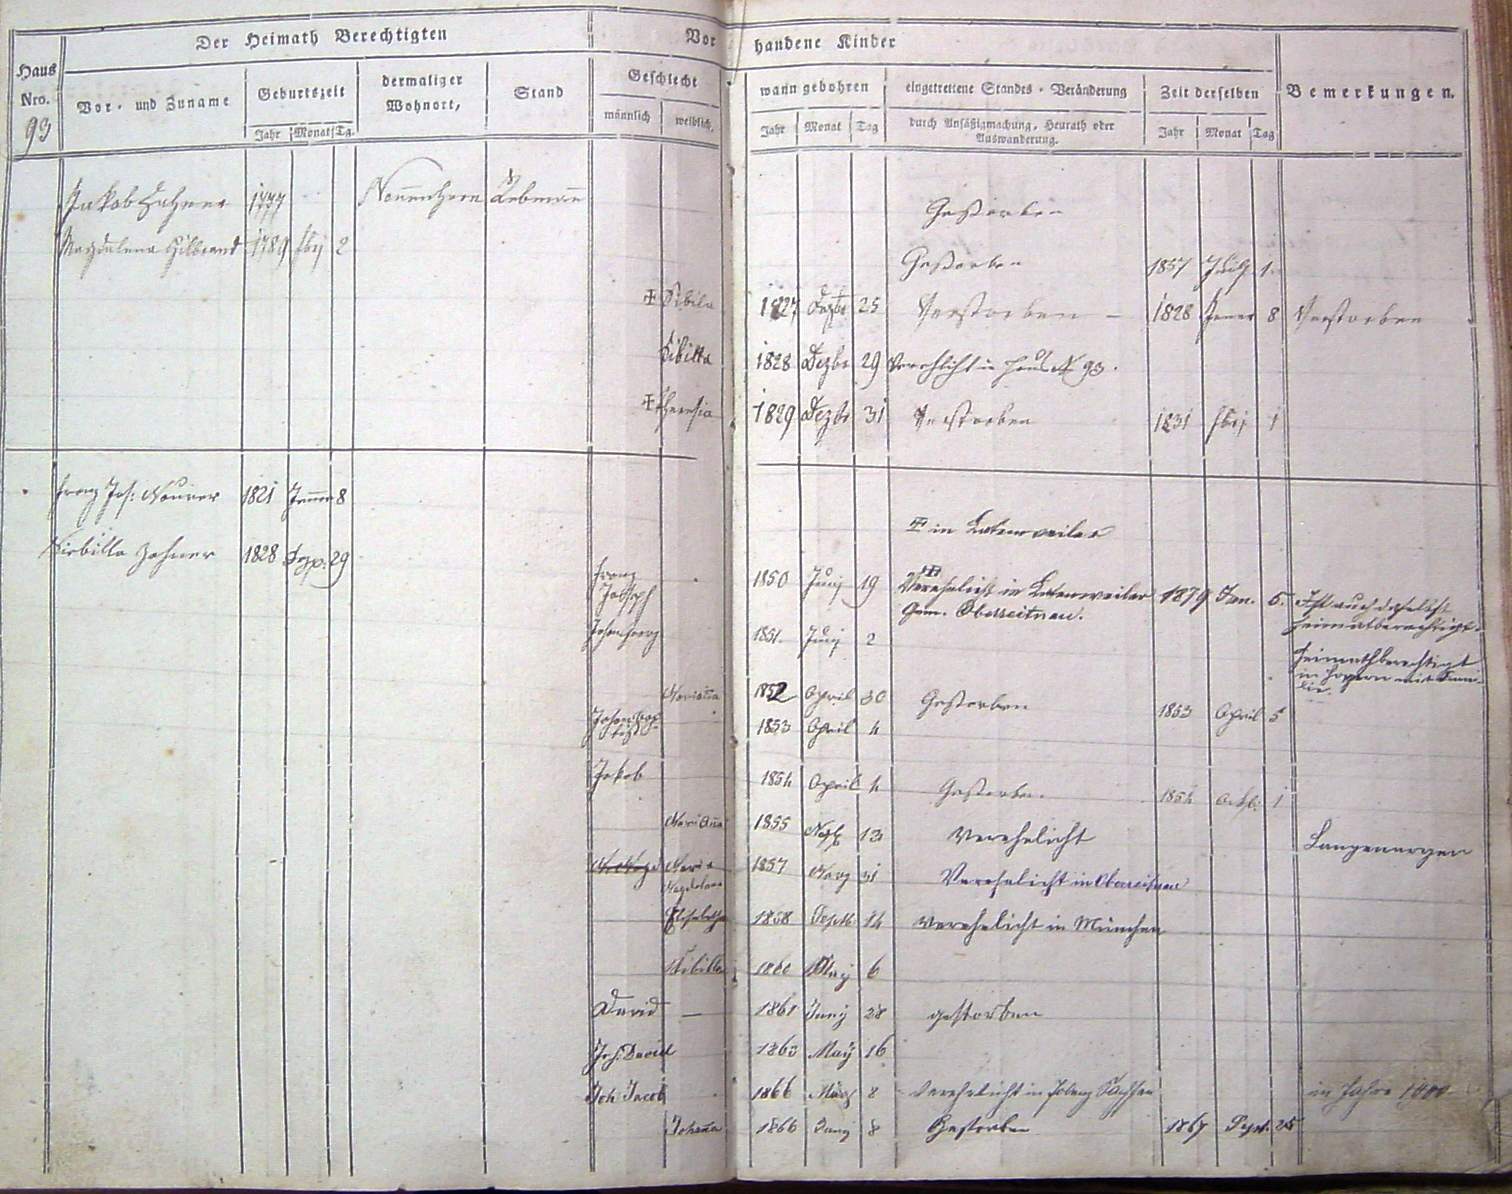 Der Heimath Berechtigten Vorhandene Kinder
Haus Nro. 93
Vor- und Zuname Geburtszeit dermaliger Wohnort, Stand Geschlecht wann gebohren eingetrettene Standes-Veränderung durch Ansäßigmachung, Heurath oder Auswanderung. Zeit derselben Bemerkungen.
Jahr Monat Tg. männlich weiblich. Jahr Monat Tag Jahr Monat Tag
Jakob Zahner 1777 Nonnenhorn Rebmann Gestorben
Magdalena Hilbrand 1789 2 Gestorben 1857 July 1
Sibila 1827 Dezbr 25 Verstorben 1828 Jener 8 Verstorben
Sibilla 1828 Dezbr 29 Verehlicht in Haus No 93.
Theresia 1829 Dezbr 31 Verstorben 1831 1
Franz Jos: Maurer 1821 Jenner 8 in Rickenweiler
Sibilla Zahner 1828 Dez. 29
Franz Joseph 1850 Juny 19 Verehelicht in 1879 Jan. 5. Ist auch daselbst heimatberechtigt.
Gem. Oberreitnau.
Johan Georg 1851 Juny 2 Heimathberechtigt in mit Familie.
Marianna 1852 April 30 Gestorben 1853 April 5
Johan Baptist 1853 April 4
Jakob 1854 April 4 Gestorben 1854 Octb. 1
Mari Anna 1855 Nov 13 Verehelicht Langenargen
Maria Magdalena 1857 Marz 31 Verehelicht in Oberreitnau
Elisabetha 1858 Septb. 14 Verehelicht in München
Sibilla 1860 May 6
David 1861 Juny 28 gestorben
Joh. David 1863 May 16
Joh Jacob 1866 März 8 Verehelicht in Sachsen im Jahre
Johanna 1866 Juny 8 Gestorben 1867 Sept. 25